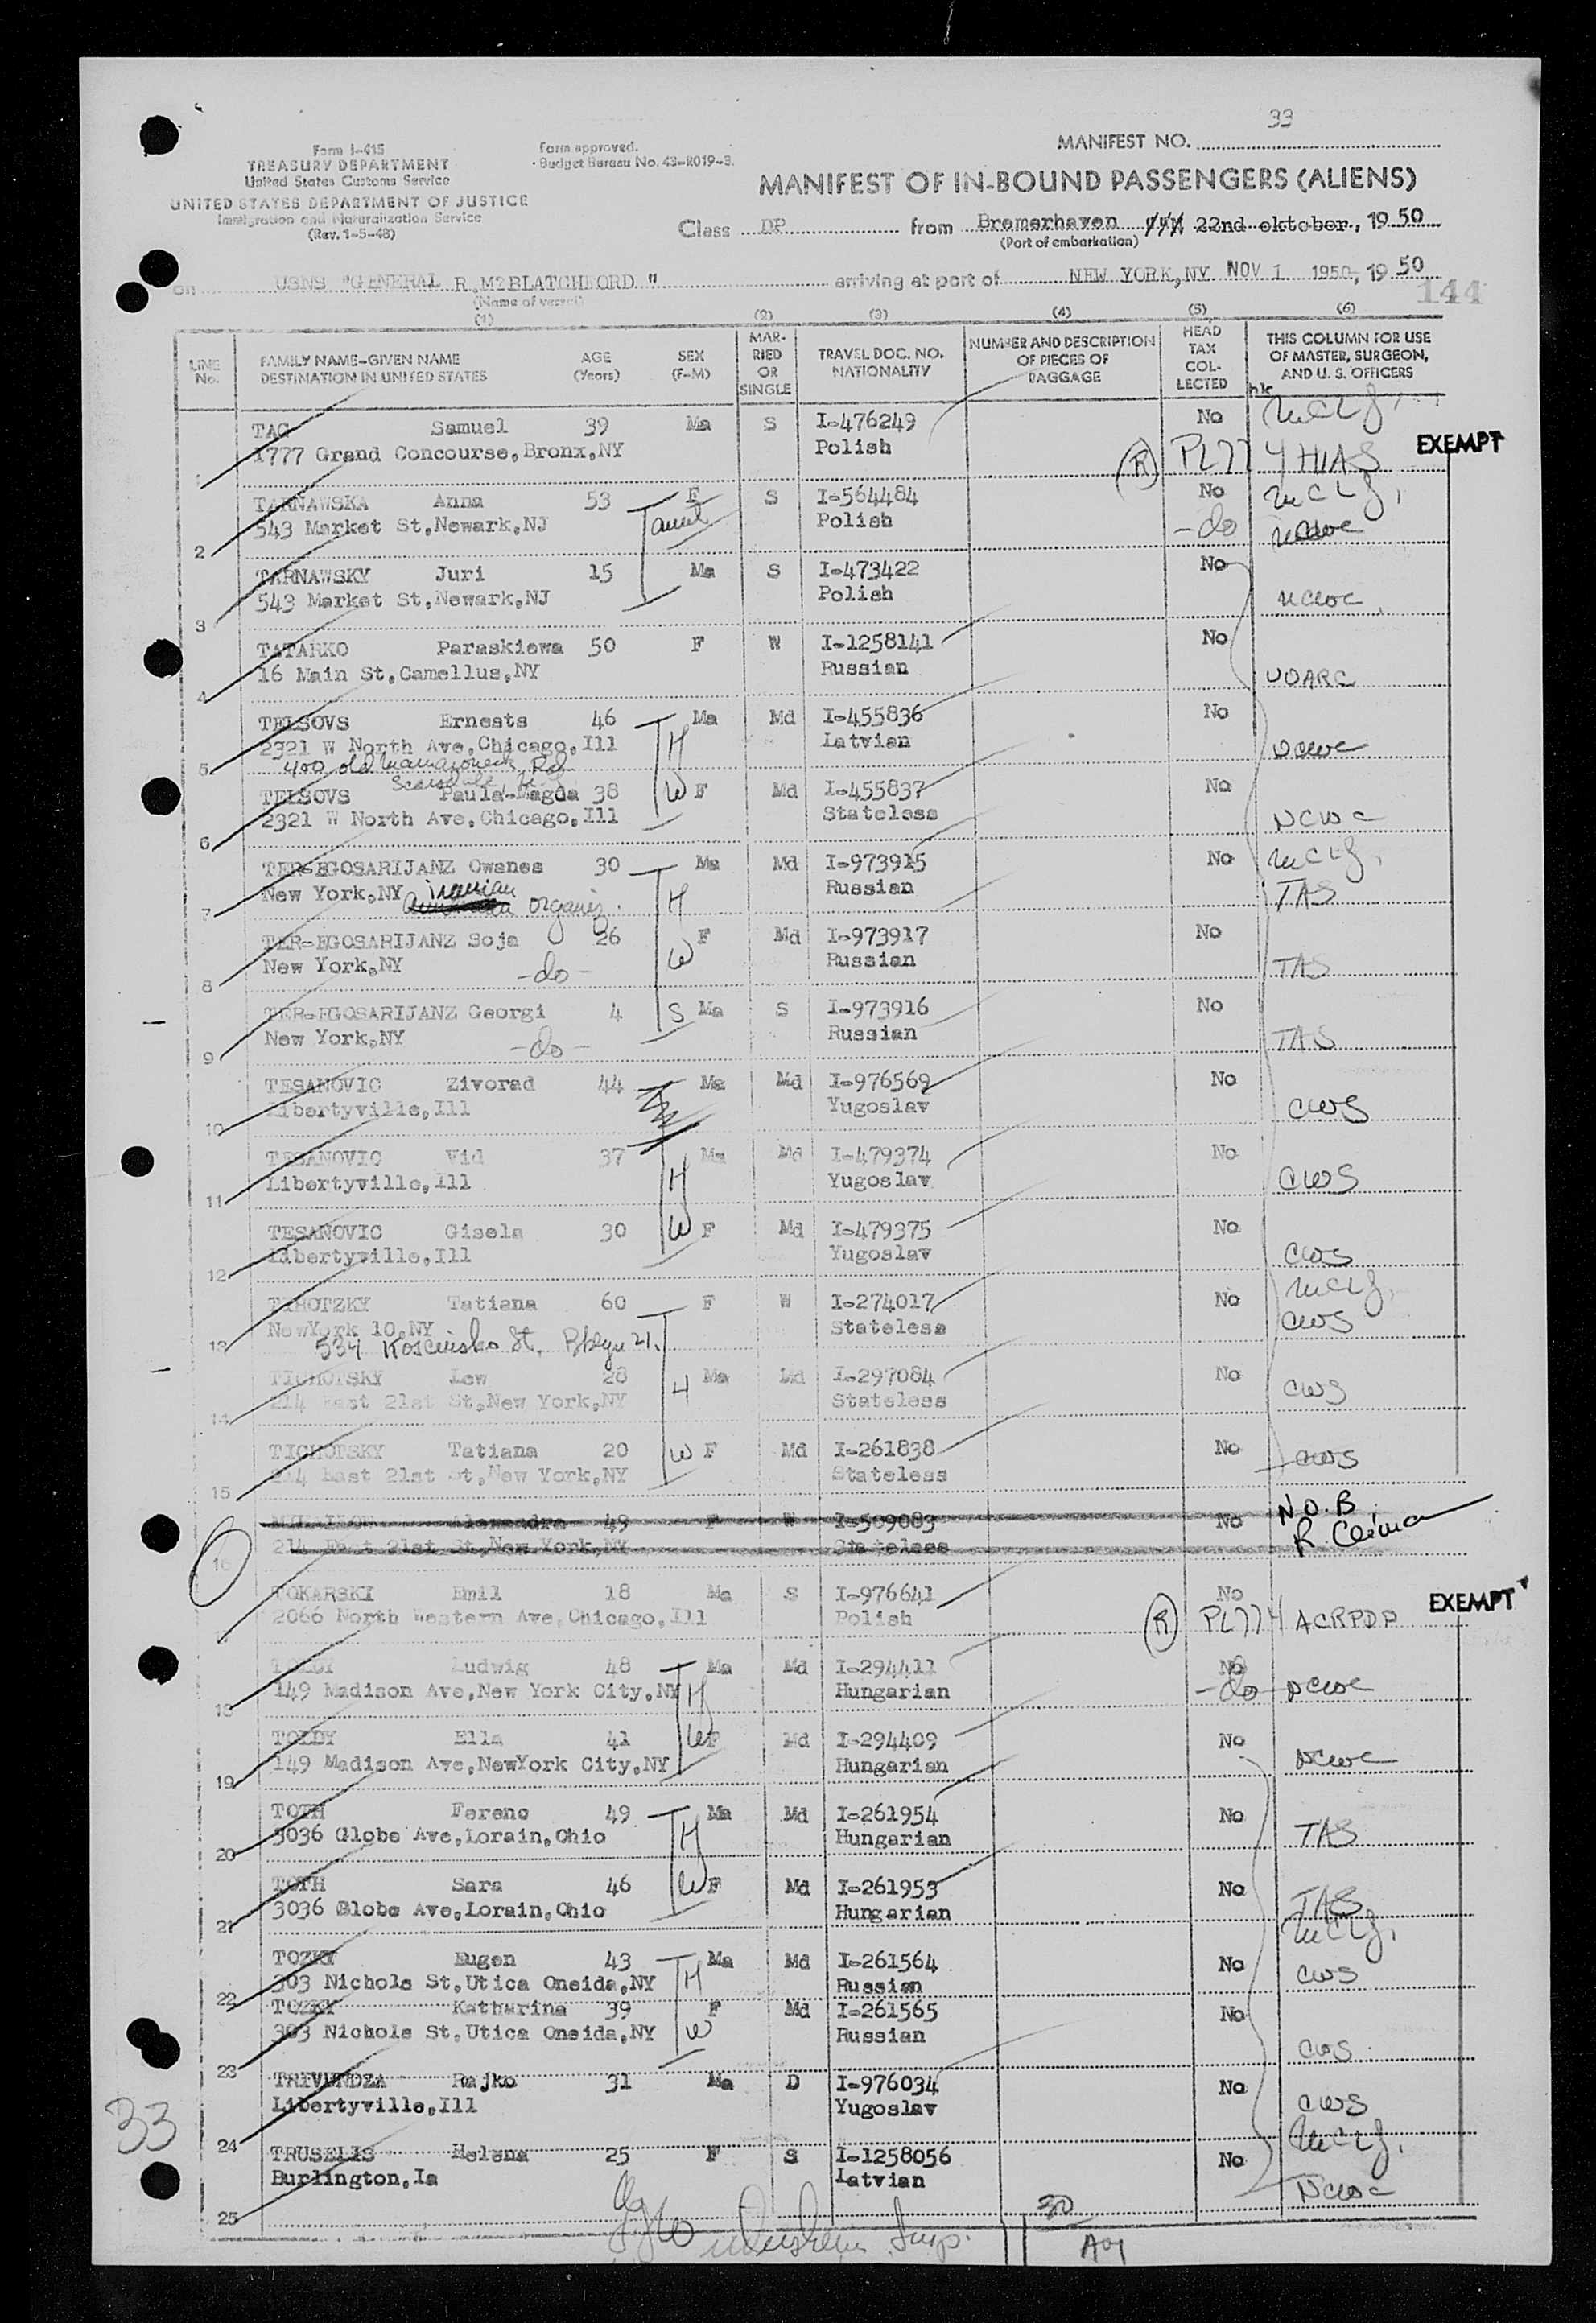 33
MANIFEST NO.
Form I-415
TREASURY DEPARTMENT
United States Customs Service
UNITED STATES DEPARTMENT OF JUSTICE
Immigration and Naturalization Service
(Rev. 1-5-48)
Form approved.
Budget Bureau No. 43-R019-3.
MANIFEST OF IN-BOUND PASSENGERS (ALIENS)
Class DP from Bremerhaven 22nd oktober, 19 50
(Port of embarkation)
on USNS "GENERAL R.M. BLATCHFORD " arriving at port of NEW YORK, NY NOV 1 1950, 19 50
(Name of vessel)
144
(1) (2) (3) (4) (5) (6)
LINE No. FAMILY NAME-GIVEN NAME DESTINATION IN UNITED STATES AGE (Years) SEX (F-M) MARRIED OR SINGLE TRAVEL DOC. NO. NATIONALITY NUMBER AND DESCRIPTION OF PIECES OF BAGGAGE HEAD TAX COLLECTED THIS COLUMN FOR USE OF MASTER, SURGEON, AND U. S. OFFICERS
TAG Samuel 39 Ma S I-476249 No
1 1777 Grand Concourse, Bronx, NY Polish (R) PL774 HIAS EXEMPT
TARNAWSKA Anna 53 F S I-564484 No
2 543 Market St, Newark, NJ aunt Polish -do- NCWC
TARNAWSKY Juri 15 Ma S I-473422 No
3 543 Market St, Newark, NJ Polish NCWC
TATARKO Paraskiewa 50 F W I-1258141 No
4 16 Main St, Camellus, NY Russian UOARC
TELSOVS Ernests 46 Ma Md I-455836 No
5 2321 W North Ave, Chicago, Ill H Latvian NCWC
400 old Mamaroneck Rd
Scarsdale
TELSOVS Paula-Magda 38 W F Md I-455837 No
6 2321 W North Ave, Chicago, Ill Stateless NCWC
TER-EGOSARIJANZ Owanes 30 Ma Md I-973915 No
7 New York, NY iranian organiz. H Russian TAS
TER-EGOSARIJANZ Soja 26 F Md I-973917 No
8 New York, NY -do- W Russian TAS
TER-EGOSARIJANZ Georgi 4 S Ma S I-973916 No
9 New York, NY -do- Russian TAS
TESANOVIC Zivorad 44 Ma Md I-976569 No
10 Libertyville, Ill Yugoslav CWS
TESANOVIC Vid 37 Ma Md I-479374 No
11 Libertyville, Ill H Yugoslav CWS
TESANOVIC Gisela 30 W F Md I-479375 No
12 Libertyville, Ill Yugoslav CWS
TIHOTZKY Tatiana 60 F W I-274017 No
13 NewYork 10, NY Stateless CWS
534 Kosciusko St. Bklyn 21.
TICHOTSKY Lew 28 H Ma Md I-297084 No
14 214 East 21st St, New York, NY Stateless CWS
TICHOTSKY Tatiana 20 W F Md I-261838 No
15 214 East 21st St, New York, NY Stateless CWS
Alexandra 49 F W I-509083 No N.O.B
16 214 East 21st St, New York, NY Stateless
TOKARSKI Emil 18 Ma S I-976641 No
2066 North Western Ave, Chicago, Ill Polish (R) PL774 ACRPDP EXEMPT
TOLDY Ludwig 48 Ma Md I-294411 No
18 149 Madison Ave, New York City, NY H Hungarian -do- NCWC
TOLDY Ella 41 W F Md I-294409 No
19 149 Madison Ave, NewYork City, NY Hungarian NCWC
TOTH Ferenc 49 Ma Md I-261954 No
20 3036 Globe Ave, Lorain, Ohio H Hungarian TAS
TOTH Sara 46 W F Md I-261953 No
21 3036 Globe Ave, Lorain, Ohio Hungarian TAS
TOZKY Eugen 43 Ma Md I-261564 No
22 303 Nichols St, Utica Oneida, NY H Russian CWS
TOZKY Katharina 39 F Md I-261565 No
23 303 Nichols St, Utica Oneida, NY W Russian CWS
TRIVUNDZA Rajko 31 Ma D I-976034 No
24 Libertyville, Ill Yugoslav CWS
TRUSELIS Helena 25 F S I-1258056 No
25 Burlington, Ia Latvian NCWC
33
Insp.
30